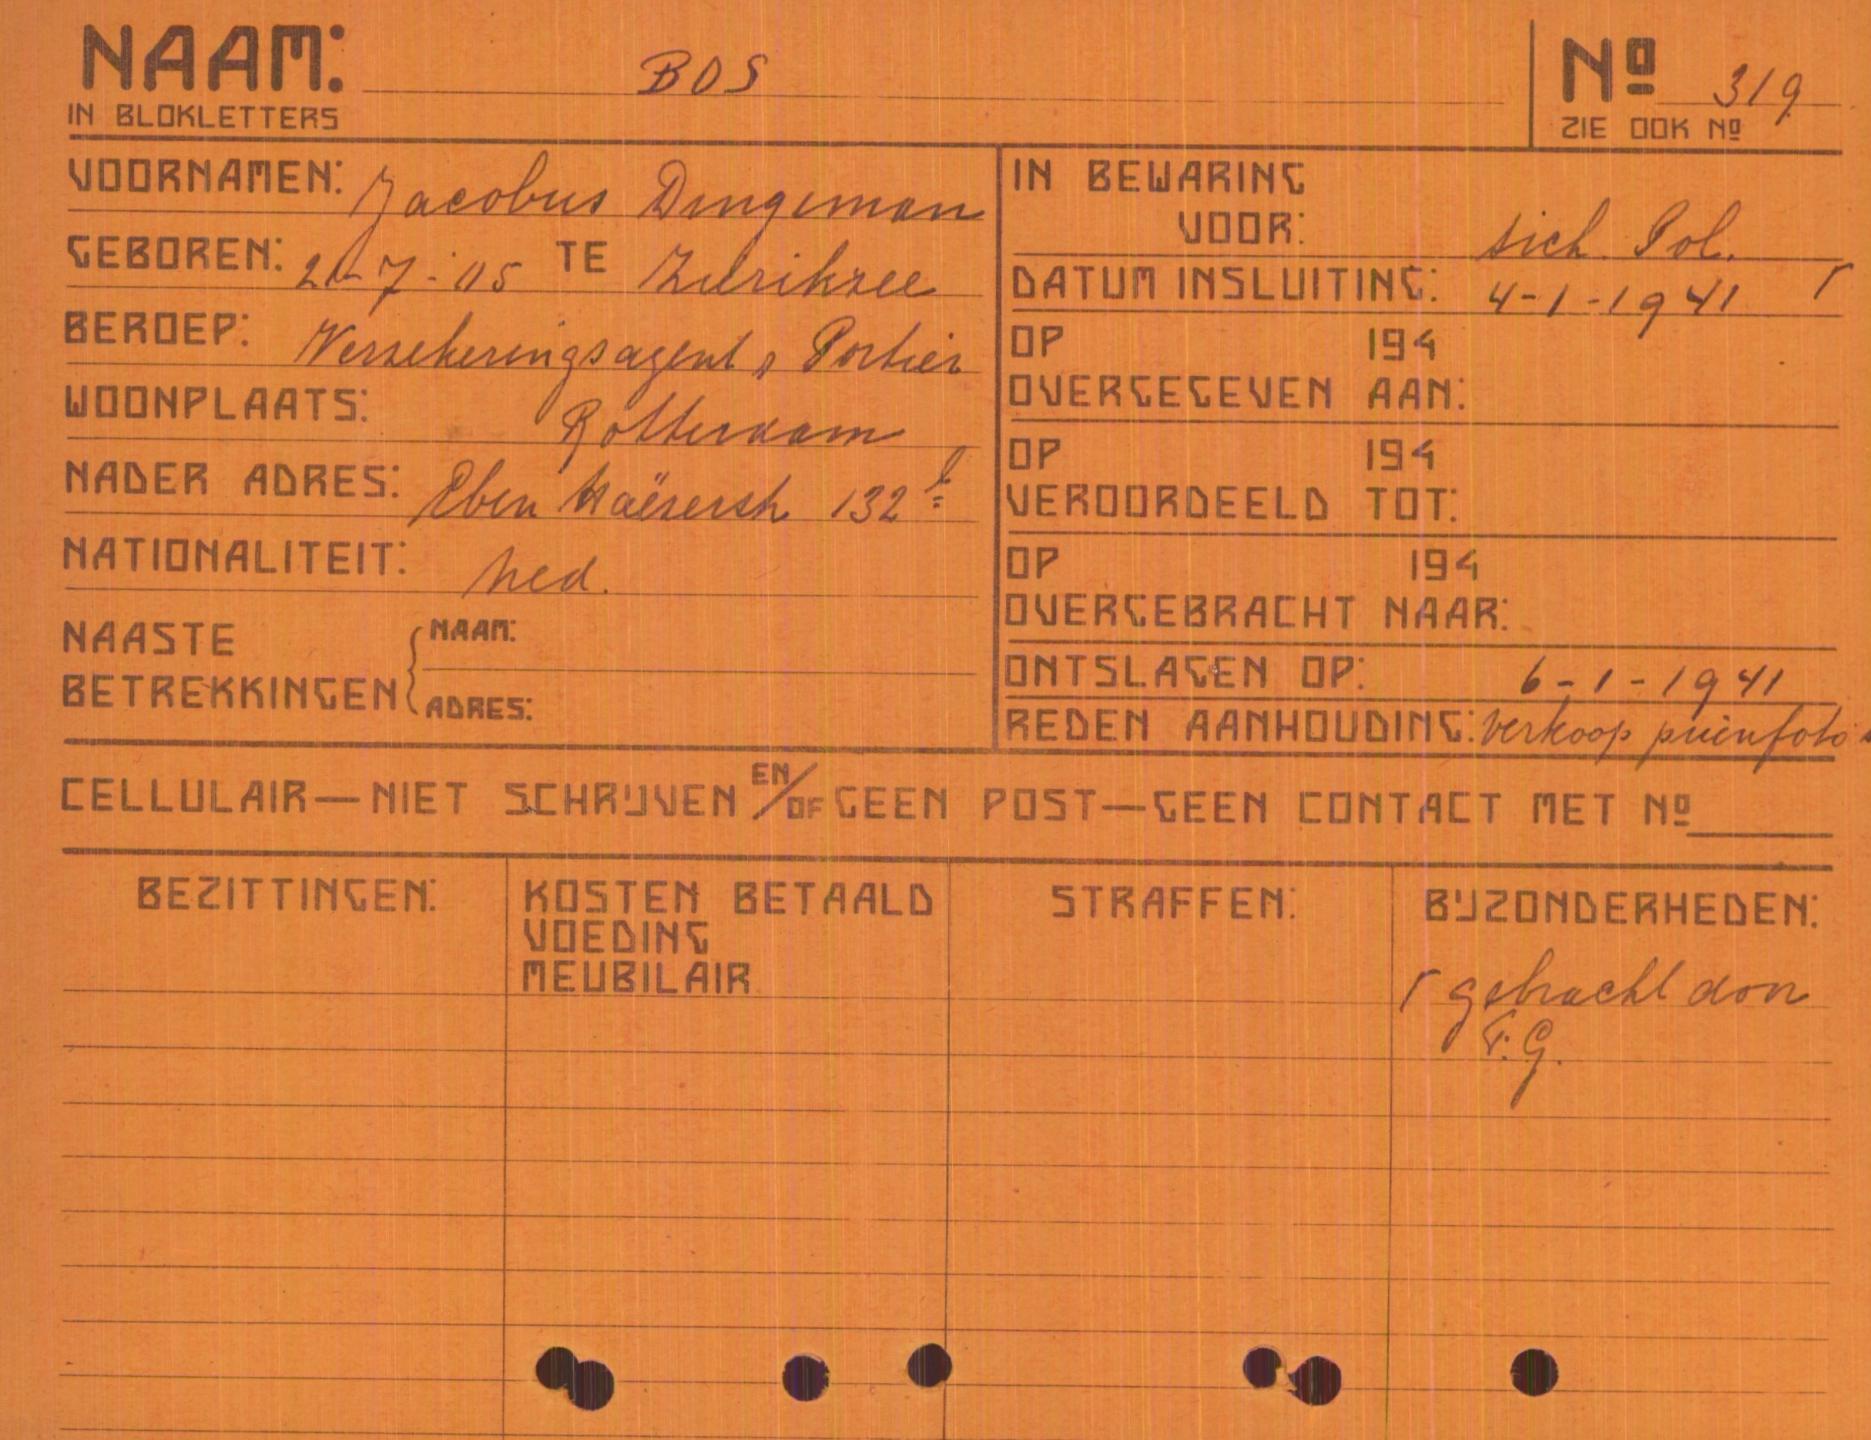 NAAM: BOS
Nº 319
IN BLOKLETTERS
ZIE OOK Nº
VOORNAMEN: Jacobus Dingeman
GEBOREN: 7-'05 TE Zierikzee
BEROEP: Verzekeringsagent, Portier
WOONPLAATS: Rotterdam
NADER ADRES: Eben Haëzerstr 132
NATIONALITEIT: Ned.
NAASTE BETREKKINGEN
NAAM:
ADRES:
IN BEWARING
VOOR: Sich. Pol.
DATUM INSLUITING: 4-1-1941 Γ
OP 194
OVERGEGEVEN AAN:
OP 194
VEROORDEELD TOT:
OP 194
OVERGEBRACHT NAAR:
ONTSLAGEN OP: 6-1-1941
REDEN AANHOUDING: verkoop puinfoto's
CELLULAIR—NIET SCHRIJVEN EN/OF GEEN POST—GEEN CONTACT MET Nº
BEZITTINGEN:
KOSTEN BETAALD
VOEDING
MEUBILAIR
STRAFFEN:
BIJZONDERHEDEN:
Γ gebracht door
F.G.